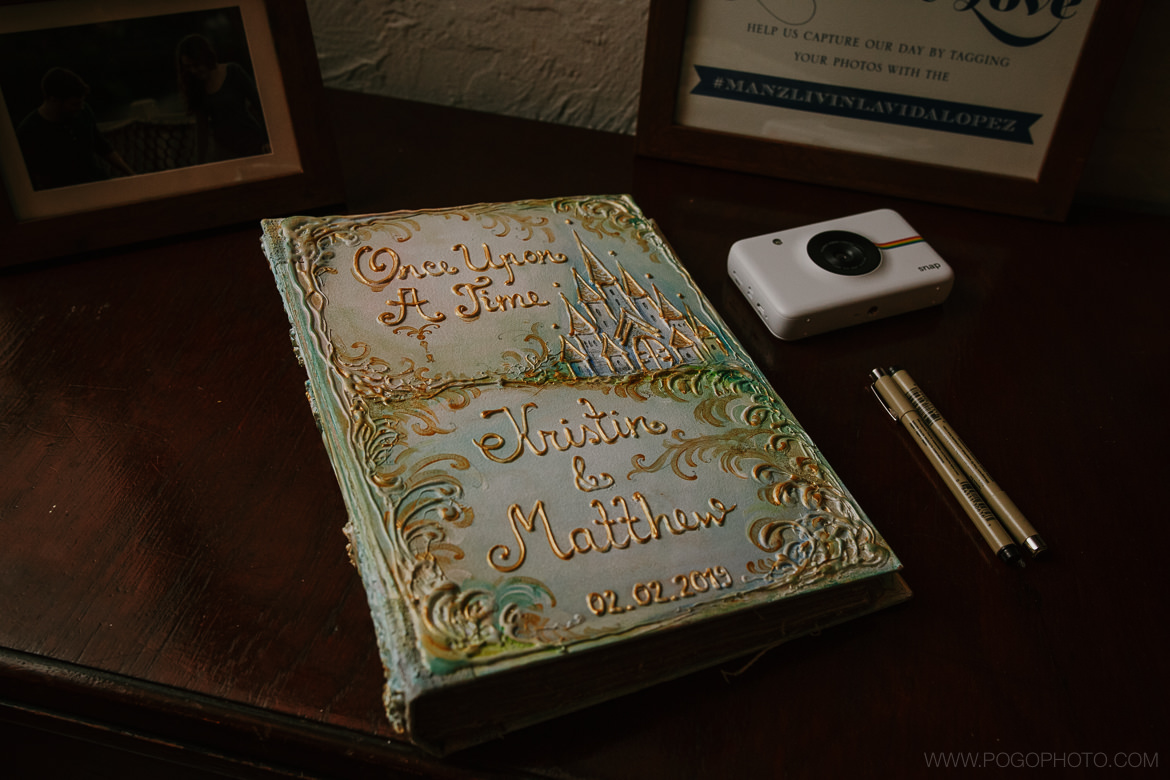 Love
HELP US CAPTURE OUR DAY BY TAGGING
YOUR PHOTOS WITH THE
#MANZLIVINLAVIDALOPEZ
Once Upon
A Time
snap
Kristin
&
Matthew
02.02.2019
WWW.POGOPHOTO.COM